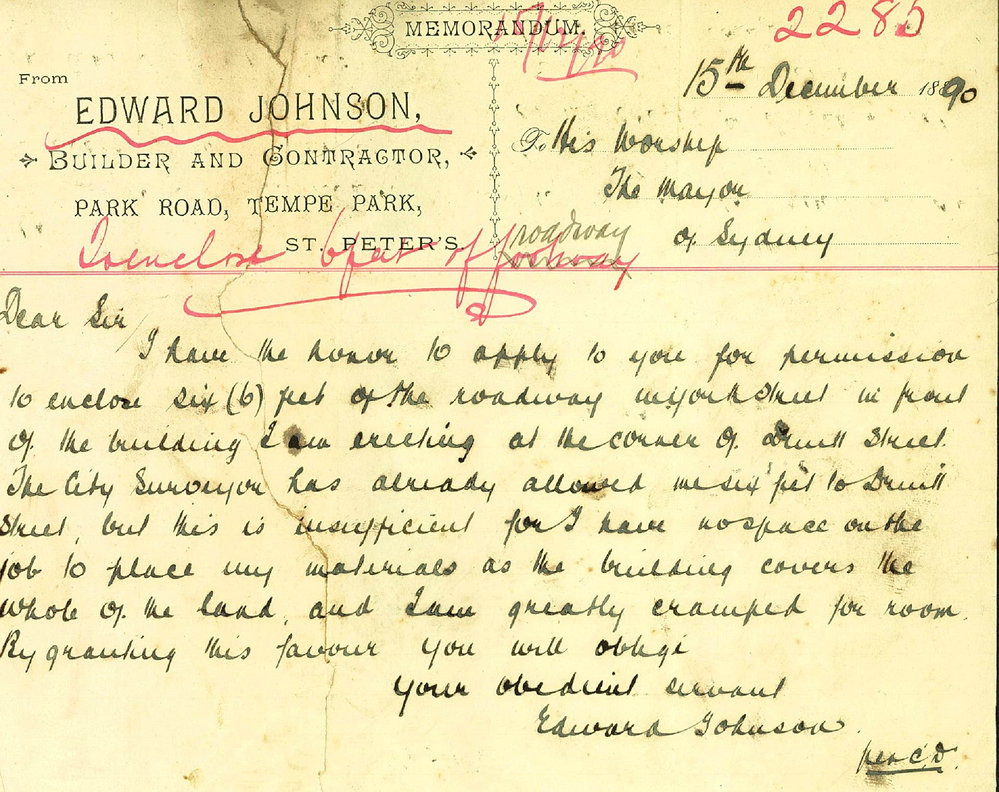 MEMORANDUM.
15/12/90
2285
15th December 1890
From
EDWARD JOHNSON,
BUILDER AND CONTRACTOR,
PARK ROAD, TEMPE PARK,
ST. PETER'S.
To His Worship
The Mayor
of Sydney
roadway
To enclose 6 feet of footway
Dear Sir
I have the honor to apply to you for permission
to enclose six (6) feet of the roadway in York Street in front
of the building I am erecting at the corner of Druitt Street.
The City Surveyor has already allowed me six feet to Druitt
Street, but this is insufficient for I have no space on the
job to place my materials as the building covers the
whole of the land, and I am greatly cramped for room.
By granting this favour you will oblige
Your obedient servant
Edward Johnson.
per C.D.